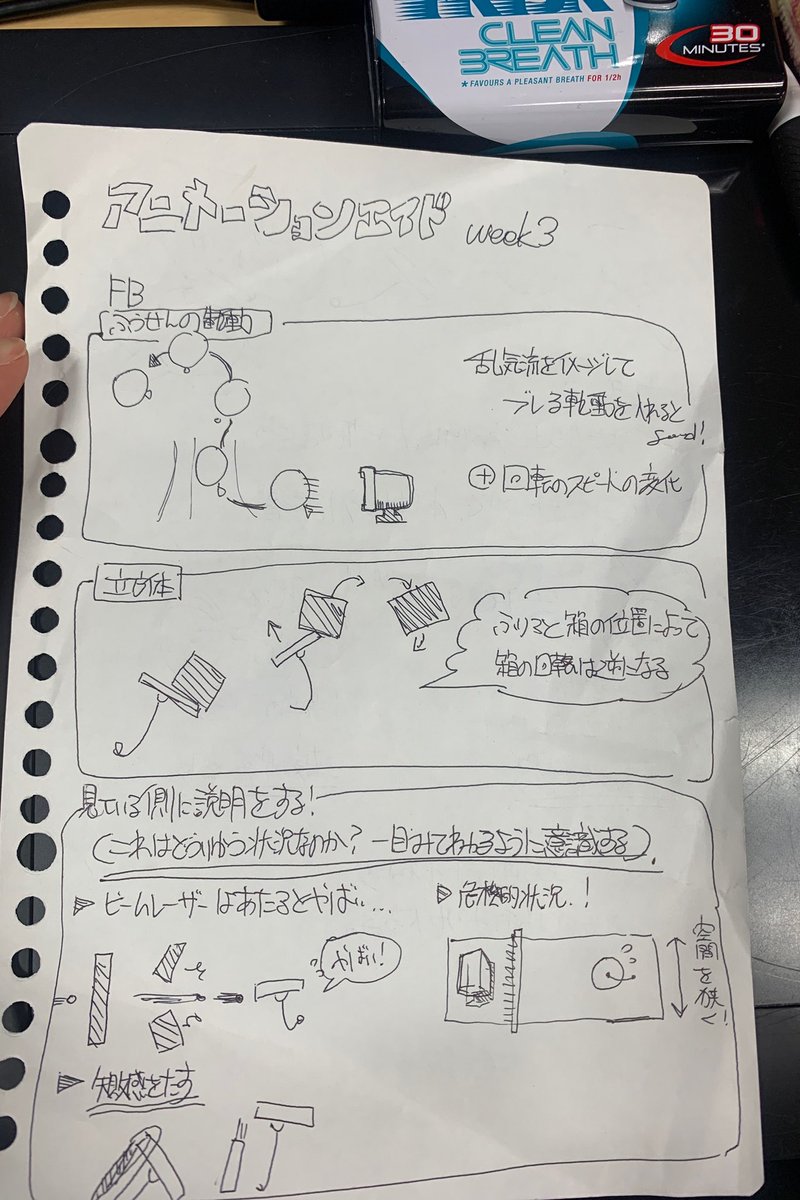 CLEAN
BREATH
* FAVOURS A PLEASANT BREATH FOR 1/2h
30
MINUTES*
アニメーションエイド week3
FB
ふうせんの軌動
乱気流をイメージして
ブレる軌動を入れると
good!
⊕ 回転のスピードの変化
立方体
ふりこと箱の位置によって
箱の回転は逆になる
見ている側に説明をする!
(これはどうゆう状況なのか? 一目みてわかるように意識する).
▷ ビームレーザーはあたるとやばい...
やばい!
▷ 危機的状況.!
空間を狭く!
▷ 失敗感をたす